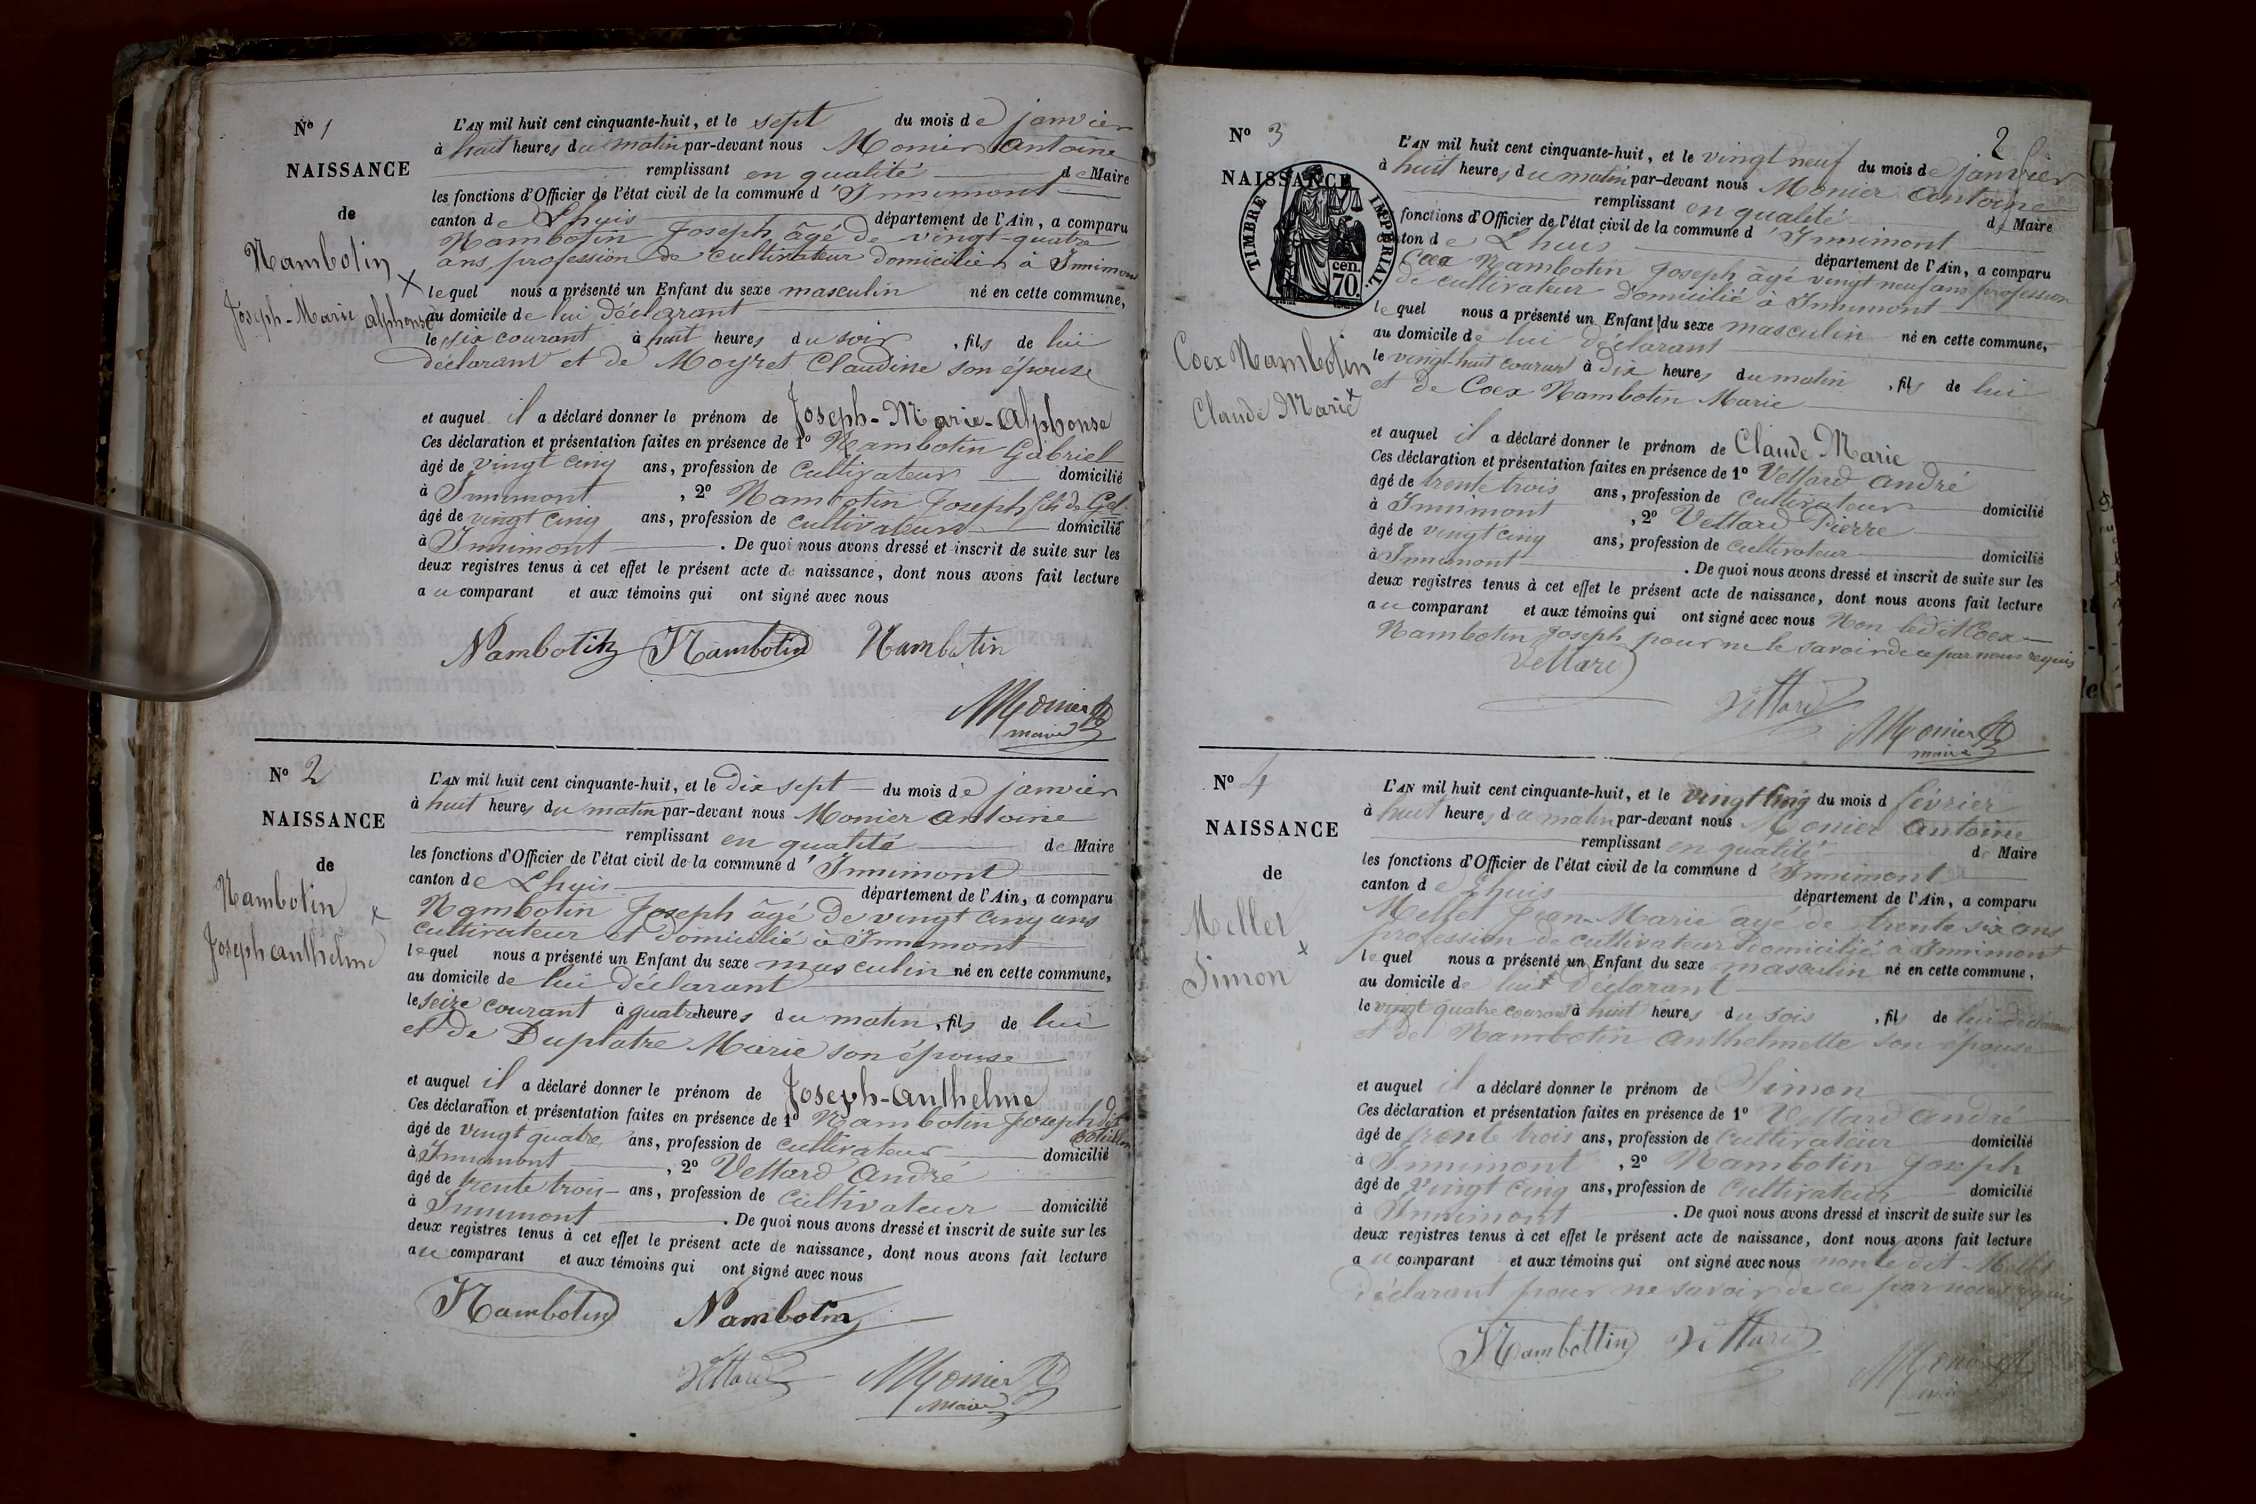 Nº 1
NAISSANCE
de
Nambotin
Joseph-Marie alphonse
L'AN mil huit cent cinquante-huit, et le sept du mois de janvier
à huit heures du matin par-devant nous Monier Antoine
remplissant en qualité de Maire
les fonctions d'Officier de l'état civil de la commune d'Innimont
canton de Lhuis département de l'Ain, a comparu
Nambotin Joseph âgé de vingt-quatre
ans, profession de cultivateur domicilié à Innimont
lequel nous a présenté un Enfant du sexe masculin né en cette commune,
au domicile de lui déclarant
le six courant à huit heures du soir, fils de lui
déclarant et de Moyret Claudine son épouse
et auquel il a déclaré donner le prénom de Joseph-Marie-Alphonse
Ces déclaration et présentation faites en présence de 1º Nambotin Gabriel
âgé de vingt cinq ans, profession de cultivateur domicilié
à Innimont, 2º Nambotin Joseph
âgé de vingt cinq ans, profession de cultivateur domicilié
à Innimont. De quoi nous avons dressé et inscrit de suite sur les
deux registres tenus à cet effet le présent acte de naissance, dont nous avons fait lecture
au comparant et aux témoins qui ont signé avec nous
Nambotin Nambotin Nambotin
Monier
maire
Nº 2
NAISSANCE
de
Nambotin
Joseph anthelme
L'AN mil huit cent cinquante-huit, et le dix sept du mois de janvier
à huit heures du matin par-devant nous Monier Antoine
remplissant en qualité de Maire
les fonctions d'Officier de l'état civil de la commune d'Innimont
canton de Lhuis département de l'Ain, a comparu
Nambotin Joseph âgé de vingt cinq ans
cultivateur et domicilié à Innimont
lequel nous a présenté un Enfant du sexe masculin né en cette commune,
au domicile de lui déclarant
le seize courant à quatre heures du matin, fils de lui
et de Duplatre Marie son épouse
et auquel il a déclaré donner le prénom de Joseph-anthelme
Ces déclaration et présentation faites en présence de 1º Nambotin Joseph dit
âgé de vingt quatre ans, profession de cultivateur domicilié
à Innimont, 2º Vettard André
âgé de trente trois ans, profession de cultivateur domicilié
à Innimont. De quoi nous avons dressé et inscrit de suite sur les
deux registres tenus à cet effet le présent acte de naissance, dont nous avons fait lecture
au comparant et aux témoins qui ont signé avec nous
Nambotin Nambotin
Vettard Monier
maire
2
Nº 3
NAISSANCE
TIMBRE IMPÉRIAL.
cen.
70
Coex Nambotin
Claude Marie
L'AN mil huit cent cinquante-huit, et le vingt neuf du mois de janvier
à huit heures du matin par-devant nous Monier Antoine
remplissant en qualité de Maire
fonctions d'Officier de l'état civil de la commune d'Innimont
canton de Lhuis département de l'Ain, a comparu
Coex Nambotin Joseph âgé vingt neuf ans profession
de cultivateur domicilié à Innimont
lequel nous a présenté un Enfant du sexe masculin né en cette commune,
au domicile de lui déclarant
le vingt-huit courant à dix heures du matin, fils de lui
et de Coex Nambotin Marie
et auquel il a déclaré donner le prénom de Claude Marie
Ces déclaration et présentation faites en présence de 1º Vettard André
âgé de trente trois ans, profession de cultivateur domicilié
à Innimont, 2º Vettard Pierre
âgé de vingt cinq ans, profession de cultivateur domicilié
à Innimont. De quoi nous avons dressé et inscrit de suite sur les
deux registres tenus à cet effet le présent acte de naissance, dont nous avons fait lecture
au comparant et aux témoins qui ont signé avec nous Non ledit Coex
Nambotin Joseph pour ne le savoir de ce par nous requis
Vettard
Vettard
Monier
maire
Nº 4
NAISSANCE
de
Mellet
Simon
L'AN mil huit cent cinquante-huit, et le vingt cinq du mois d février
à huit heures du matin par-devant nous Monier Antoine
remplissant en qualité de Maire
les fonctions d'Officier de l'état civil de la commune d'Innimont
canton de Lhuis département de l'Ain, a comparu
Mellet Jean-Marie âgé de trente six ans
profession de cultivateur domicilié à Innimont
lequel nous a présenté un Enfant du sexe masculin né en cette commune,
au domicile de lui déclarant
le vingt quatre courant à huit heures du soir, fils de lui déclarant
et de Nambotin Anthelmette son épouse
et auquel il a déclaré donner le prénom de Simon
Ces déclaration et présentation faites en présence de 1º Vettard André
âgé de trente trois ans, profession de cultivateur domicilié
à Innimont, 2º Nambotin Joseph
âgé de vingt cinq ans, profession de cultivateur domicilié
à Innimont. De quoi nous avons dressé et inscrit de suite sur les
deux registres tenus à cet effet le présent acte de naissance, dont nous avons fait lecture
au comparant et aux témoins qui ont signé avec nous non le dit Mellet
déclarant pour ne savoir de ce par nous requis
Nambottin Vettard
Monier